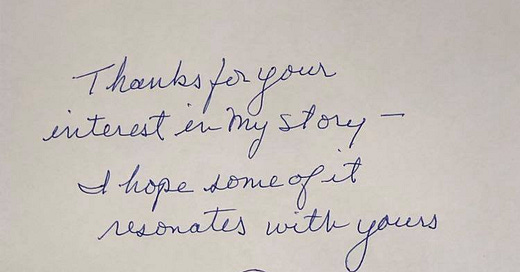 Thanks for your
interest in My story –
I hope some of it
resonates with yours